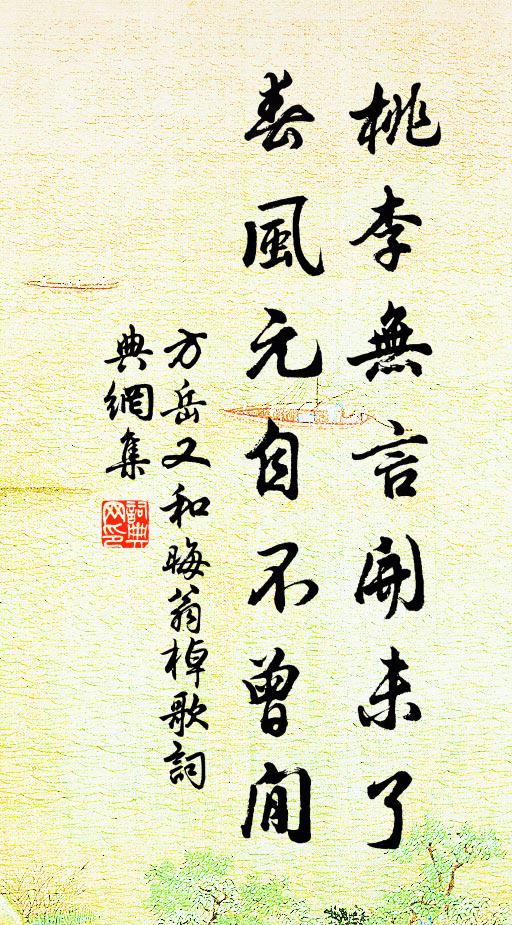 桃李無言開未了
春風元自不曾閒
方岳又和晦翁棹歌詞
典網集
詞典网印